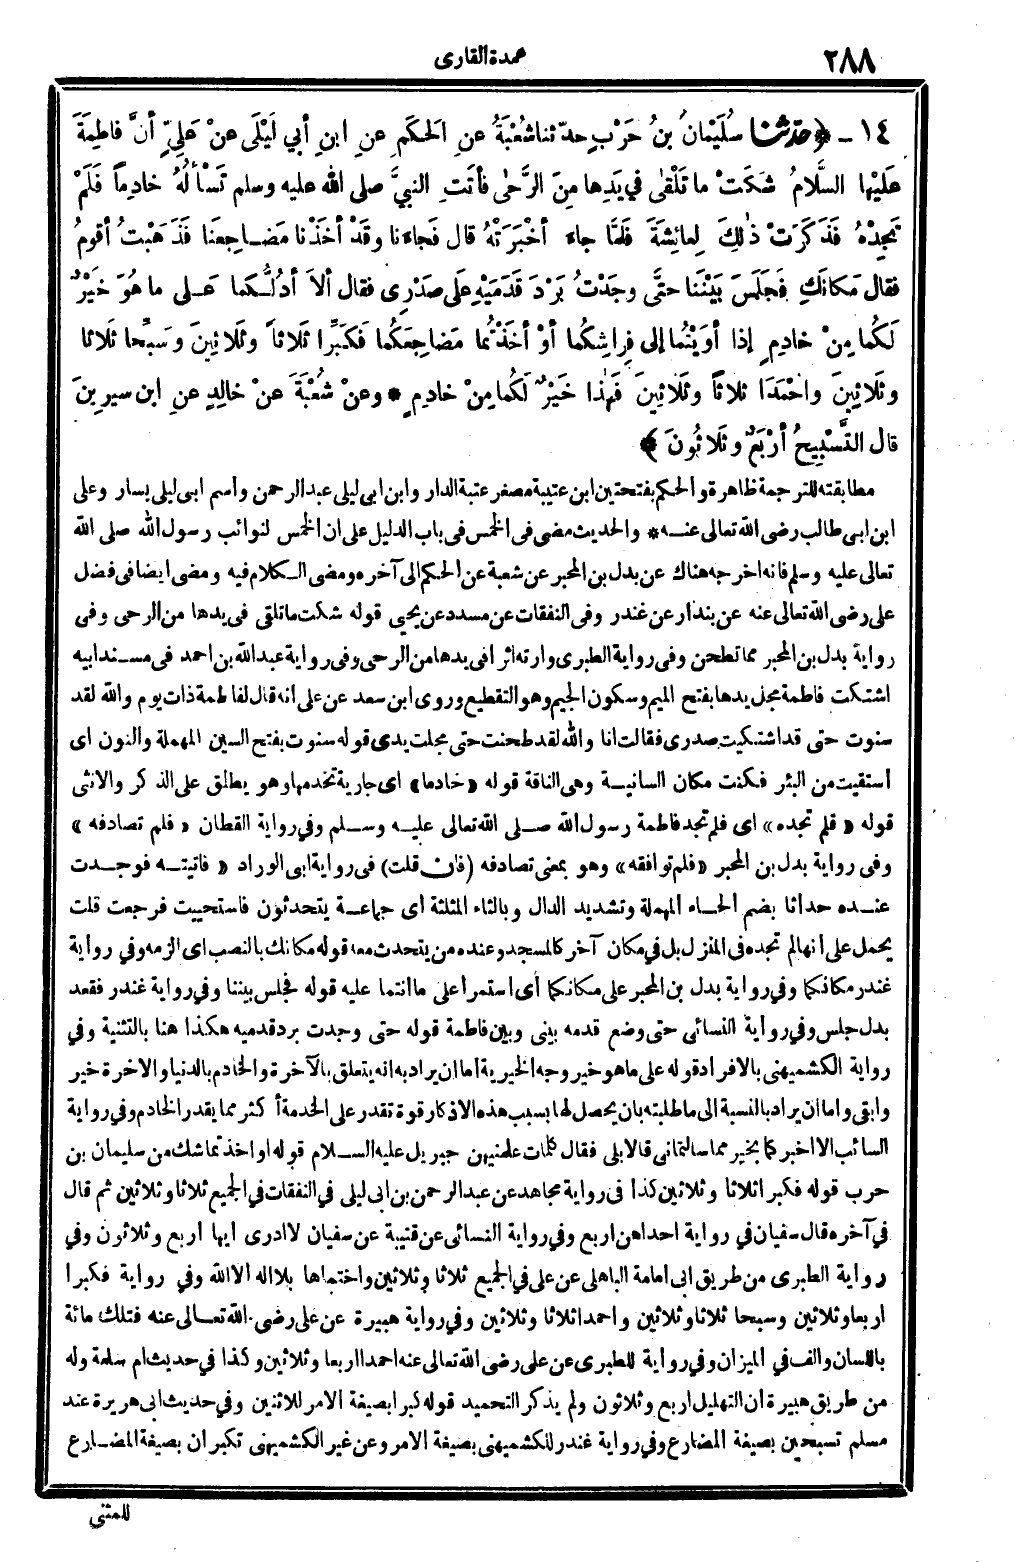 ٢٨٨
عمدة القارى
١٤ - ﴿ حدثنا سُلَيْمانُ بنُ حَرْبٍ حدّثنا شُعْبَةُ عنِ الحَكَمِ عنِ ابنِ أبي لَيْلَى عنْ عَلِيٍّ أنَّ فاطِمَةَ
عَلَيْها السَّلامُ شَكَتْ ما تَلْقٰى في يَدِها مِنَ الرَّحٰى فأتَتِ النبيَّ صلى الله عليه وسلم تَسْألُهُ خادِماً فَلَمْ
تَجِدْهُ فَذَكَرَتْ ذٰلِكَ لِعائِشَةَ فَلَمَّا جاءَ أخْبَرَتْهُ قال فَجاءَنا وقَدْ أخَذْنا مَضاجِعَنا فَذَهَبْتُ أقومُ
فقال مَكانَكِ فَجَلَسَ بَيْنَنا حتَّى وجَدْتُ بَرْدَ قَدَمَيْهِ عَلَى صَدْرِي فقال ألاَ أدُلُّكما عَلَى ما هُوَ خَيْرٌ
لَكُما مِنْ خادِمٍ إذا أوَيْتُما إلى فِراشِكُما أوْ أخَذْتُما مَضاجِعَكُما فَكَبِّرا ثَلاثاً وثَلاثِينَ وسَبِّحا ثَلاثا
وثَلاثِينَ واحْمَدَا ثلاثاً وثَلاثِينَ فَهٰذا خَيْرٌ لَكُما مِنْ خادِمٍ * وعنْ شُعْبَةَ عنْ خالِدٍ عنِ ابن سيرِينَ
قال التَّسْبِيحُ أرْبَعٌ وثَلاثُونَ ﴾
مطابقته للترجمة ظاهرة والحكم بفتحتين ابن عتيبة مصغر عتبة الدار وابن ابى ليلى عبد الرحمن واسم ابى ليلى يسار وعلى
ابن ابى طالب رضى الله تعالى عنه * والحديث مضى فى الخمس فى باب الدليل على ان الخمس لنوائب رسول الله صلى الله
تعالى عليه وسلم فانه اخرجه هناك عن بدل بن المحبر عن شعبة عن الحكم الى آخره ومضى الكلام فيه ومضى ايضا فى فضل
على رضى الله تعالى عنه عن بندار عن غندر وفى النفقات عن مسدد عن يحيى قوله شكت ما تلقى فى يدها من الرحى وفى
رواية بدل بن المحبر مما تطحن وفى رواية الطبرى وارته اثرا فى يدها من الرحى وفى رواية عبد الله بن احمد فى مسند ابيه
اشتكت فاطمة مجل يدها بفتح الميم وسكون الجيم وهو التقطيع وروى ابن سعد عن على انه قال لفاطمة ذات يوم والله لقد
سنوت حتى قد اشتكيت صدرى فقالت انا والله لقد طحنت حتى مجلت يدى قوله سنوت بفتح السين المهملة والنون اى
استقيت من البئر فكنت مكان السانية وهى الناقة قوله «خادما» اى جارية تخدمها وهو يطلق على الذكر والانثى
قوله «فلم تجده» اى فلم تجد فاطمة رسول الله صلى الله تعالى عليه وسلم وفي رواية القطان «فلم تصادفه»
وفى رواية بدل بن المحبر «فلم توافقه» وهو بمعنى تصادفه (فان قلت) فى رواية ابى الوراد «فاتيته فوجدت
عنده حداثا بضم الحاء المهملة وتشديد الدال وبالثاء المثلثة أى جماعة يتحدثون فاستحييت فرجعت قلت
يحمل على انها لم تجده فى المنزل بل في مكان آخر كالمسجد وعنده من يتحدث معه قوله مكانك بالنصب اى الزمه وفي رواية
غندر مكانكما وفي رواية بدل بن المحبر على مكانكما أى استمرا على ما انتما عليه قوله فجلس بيننا وفي رواية غندر فقعد
بدل جلس وفي رواية النسائى حتى وضع قدمه بينى وبين فاطمة قوله حتى وجدت برد قدميه هكذا هنا بالتثنية وفي
رواية الكشميهنى بالافراد قوله على ما هو خير وجه الخيرية اما ان يراد به انه يتعلق بالآخرة والخادم بالدنيا والاخرة خير
وابقى واما ان يراد بالنسبة الى ما طلبته بان يحصل لها بسبب هذه الاذكار قوة تقدر على الخدمة أكثر مما يقدر الخادم وفي رواية
السائب الا اخبركما بخير مما سالتمانى قالا بلى فقال كلمات علمنيهن جبريل عليه السلام قوله او اخذتما شك من سليمان بن
حرب قوله فكبرا ثلاثا وثلاثين كذا فى رواية مجاهد عن عبد الرحمن بن ابى ليلى في النفقات في الجميع ثلاثا وثلاثين ثم قال
في آخره قال سفيان في رواية احداهن اربع وفي رواية النسائى عن قتيبة عن سفيان لا ادرى ايها اربع وثلاثون وفي
رواية الطبرى من طريق ابى امامة الباهلى عن على في الجميع ثلاثا وثلاثين واختماها بلا اله الا الله وفي رواية فكبرا
اربعا وثلاثين وسبحا ثلاثا وثلاثين واحمدا ثلاثا وثلاثين وفي رواية هبيرة عن على رضى الله تعالى عنه فتلك مائة
باللسان والف في الميزان وفي رواية للطبرى عن على رضى الله تعالى عنه احمدا اربعا وثلاثين وكذا في حديث ام سلمة وله
من طريق هبيرة ان التهليل اربع وثلاثون ولم يذكر التحميد قوله كبرا بصيغة الامر للاثنين وفي حديث ابى هريرة عند
مسلم تسبحين بصيغة المضارع وفي رواية غندر للكشميهنى بصيغة الامر وعن غير الكشميهنى تكبران بصيغة المضارع
للمثنى